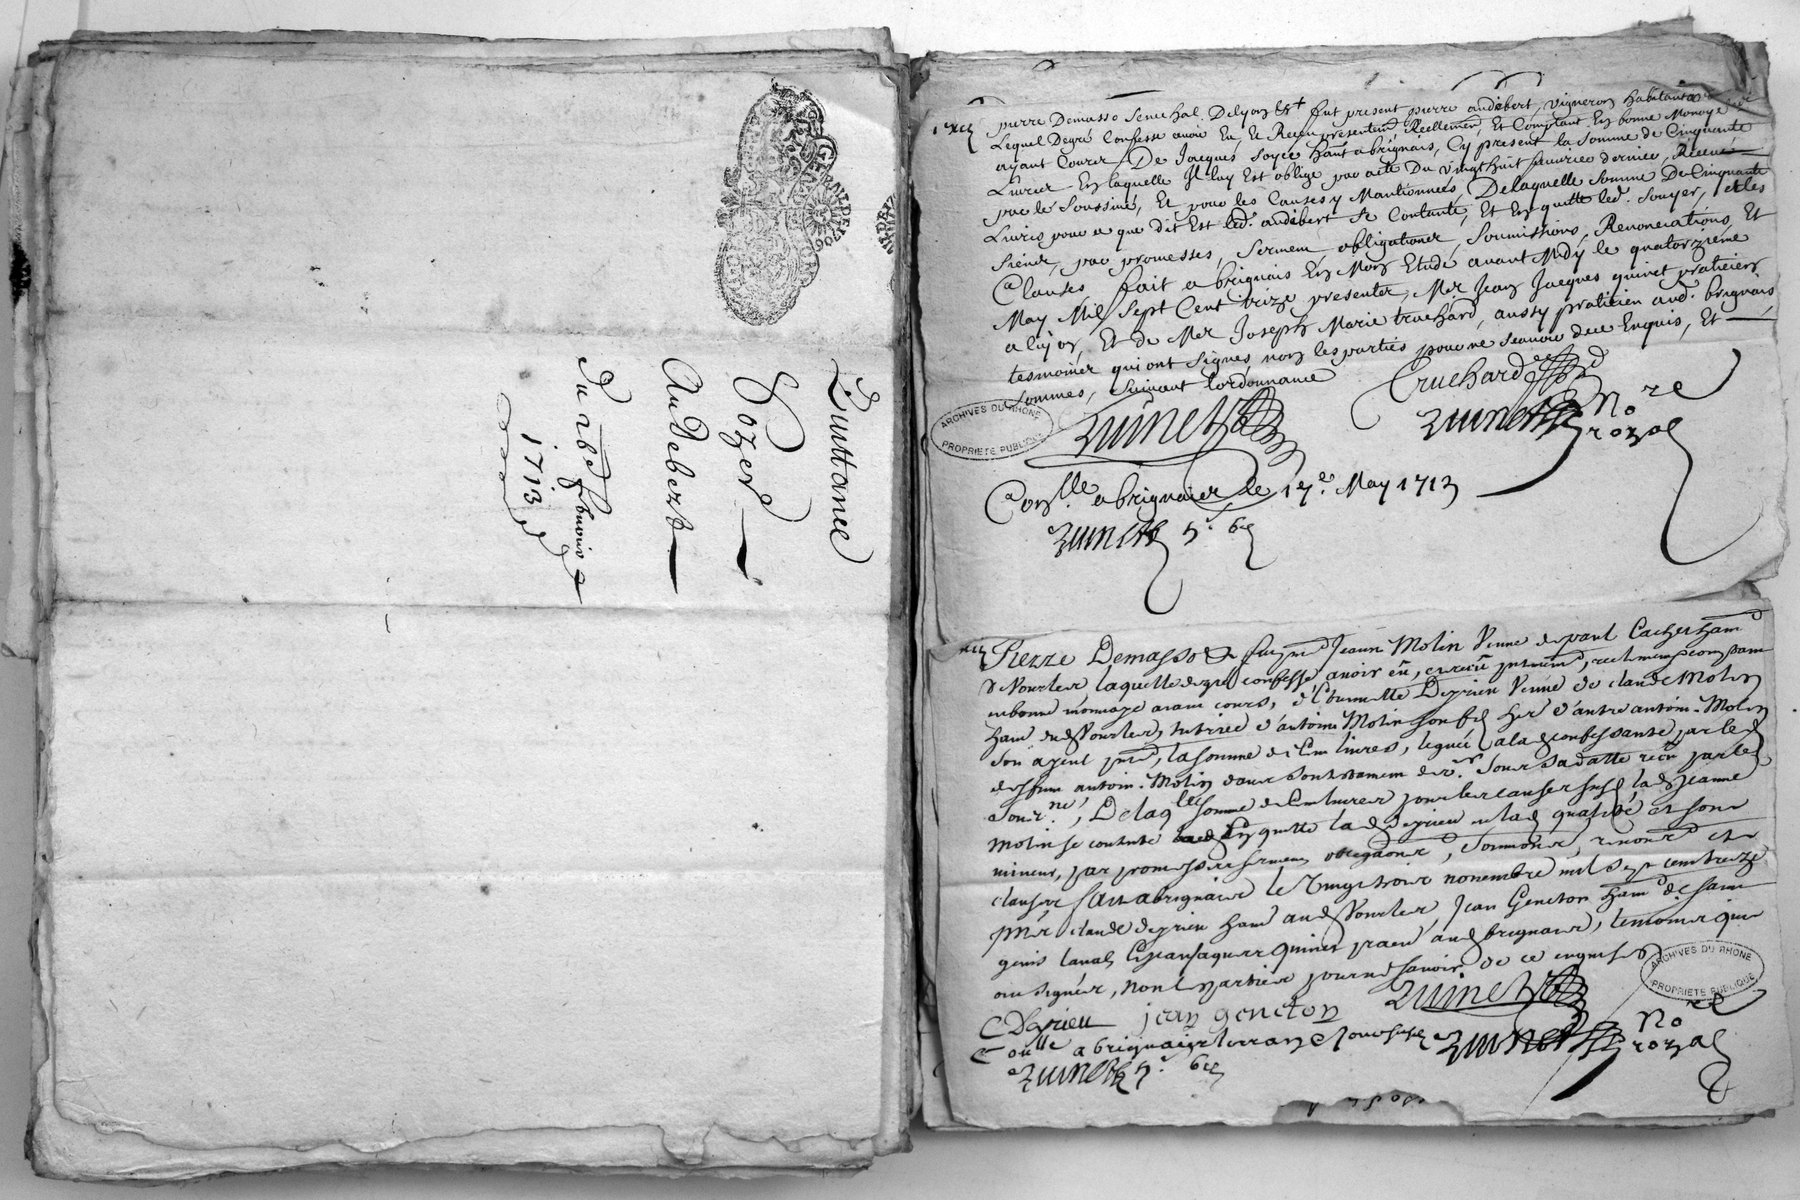 GE
Quittance
Soyer
Audebert
du 28e febvrier
1713
pierre Demasso Senechal Delyon &t fut present pierre audebert, vigneron habitant a
Lequel Degré Confesse avoir Eu Et Receu presentemt Réellement, Et Comptant En bonne Monoye
ayant Cours De Jacques soyer hant a brignais, Cy present la Somme de Cinquante
Livres En laquelle Il luy Est obligé par acte Du vingt huit feuvrier dernier, Receu
par le Soussiné, Et pour les Causes y Mantionnées, Delaquelle Somme De Cinquante
Livres pour ce que dit Est led. audebert se Contante, Et En quitte led. Souyer, et les
Siens, par promesses, Serment, obligations, Soumissions, Renonciations, Et
Clauses fait a brignais En Mon Etude avant Midy le quatorzieme
May Mil Sept Cent trize presentes, Mer Jean Jacques quinet praticien
a lyon, Et de Mer Joseph Marie truchard, aussy praticien aud. brignais
tesmoins qui ont signés non les parties pour ne scavoir de ce Enquis, Et
sommes, suivant l'ordonnance
Cruchard
quinet
quinet Nore
royal
ARCHIVES DU RHONE
PROPRIETE PUBLIQUE
Conlle a brignais le 17e. May 1713
quinet
Pierre Demasso & fut pnt Jeanne Molin Veuve de paul Cacher hant
de Vourles laquelle de gré confesse avoir eû, et receû presentemt, reelement comptant
en bonne monnoye aiant cours, d'Etiennette Deprieu Veuve de claude Molin
hant dud Vourles tutrice d'antoine Molin son fils her d'autre antoine Molin
son ayeul pnt, la somme de Cent livres, leguée a lad confessante par led
deffunt antoine Molin dans son testament de sa datte receu par led
soune, Delaqlle somme de Cent livres pour les causes susd lad Jeanne
Molin se contente En quitte lad Deprieu en lad qualité et son
mineur, par promesses serment obligaons, soumons, renons et
clauses fait a brignais le Vingt trois novembre mil sept cent treize
pnts claude deprieu hant aud Vourles, Jean Geneton hant de saint
genis laval, Et Jean Jaques Quinet pracn aud brignais, temoins qui
ont signés, non l parties pour ne savoir de ce enquises
C Deprieu jean geneton quinet
Coulle a brignais
quinet
quinet Nore
royal
ARCHIVES DU RHONE
PROPRIETE PUBLIQUE